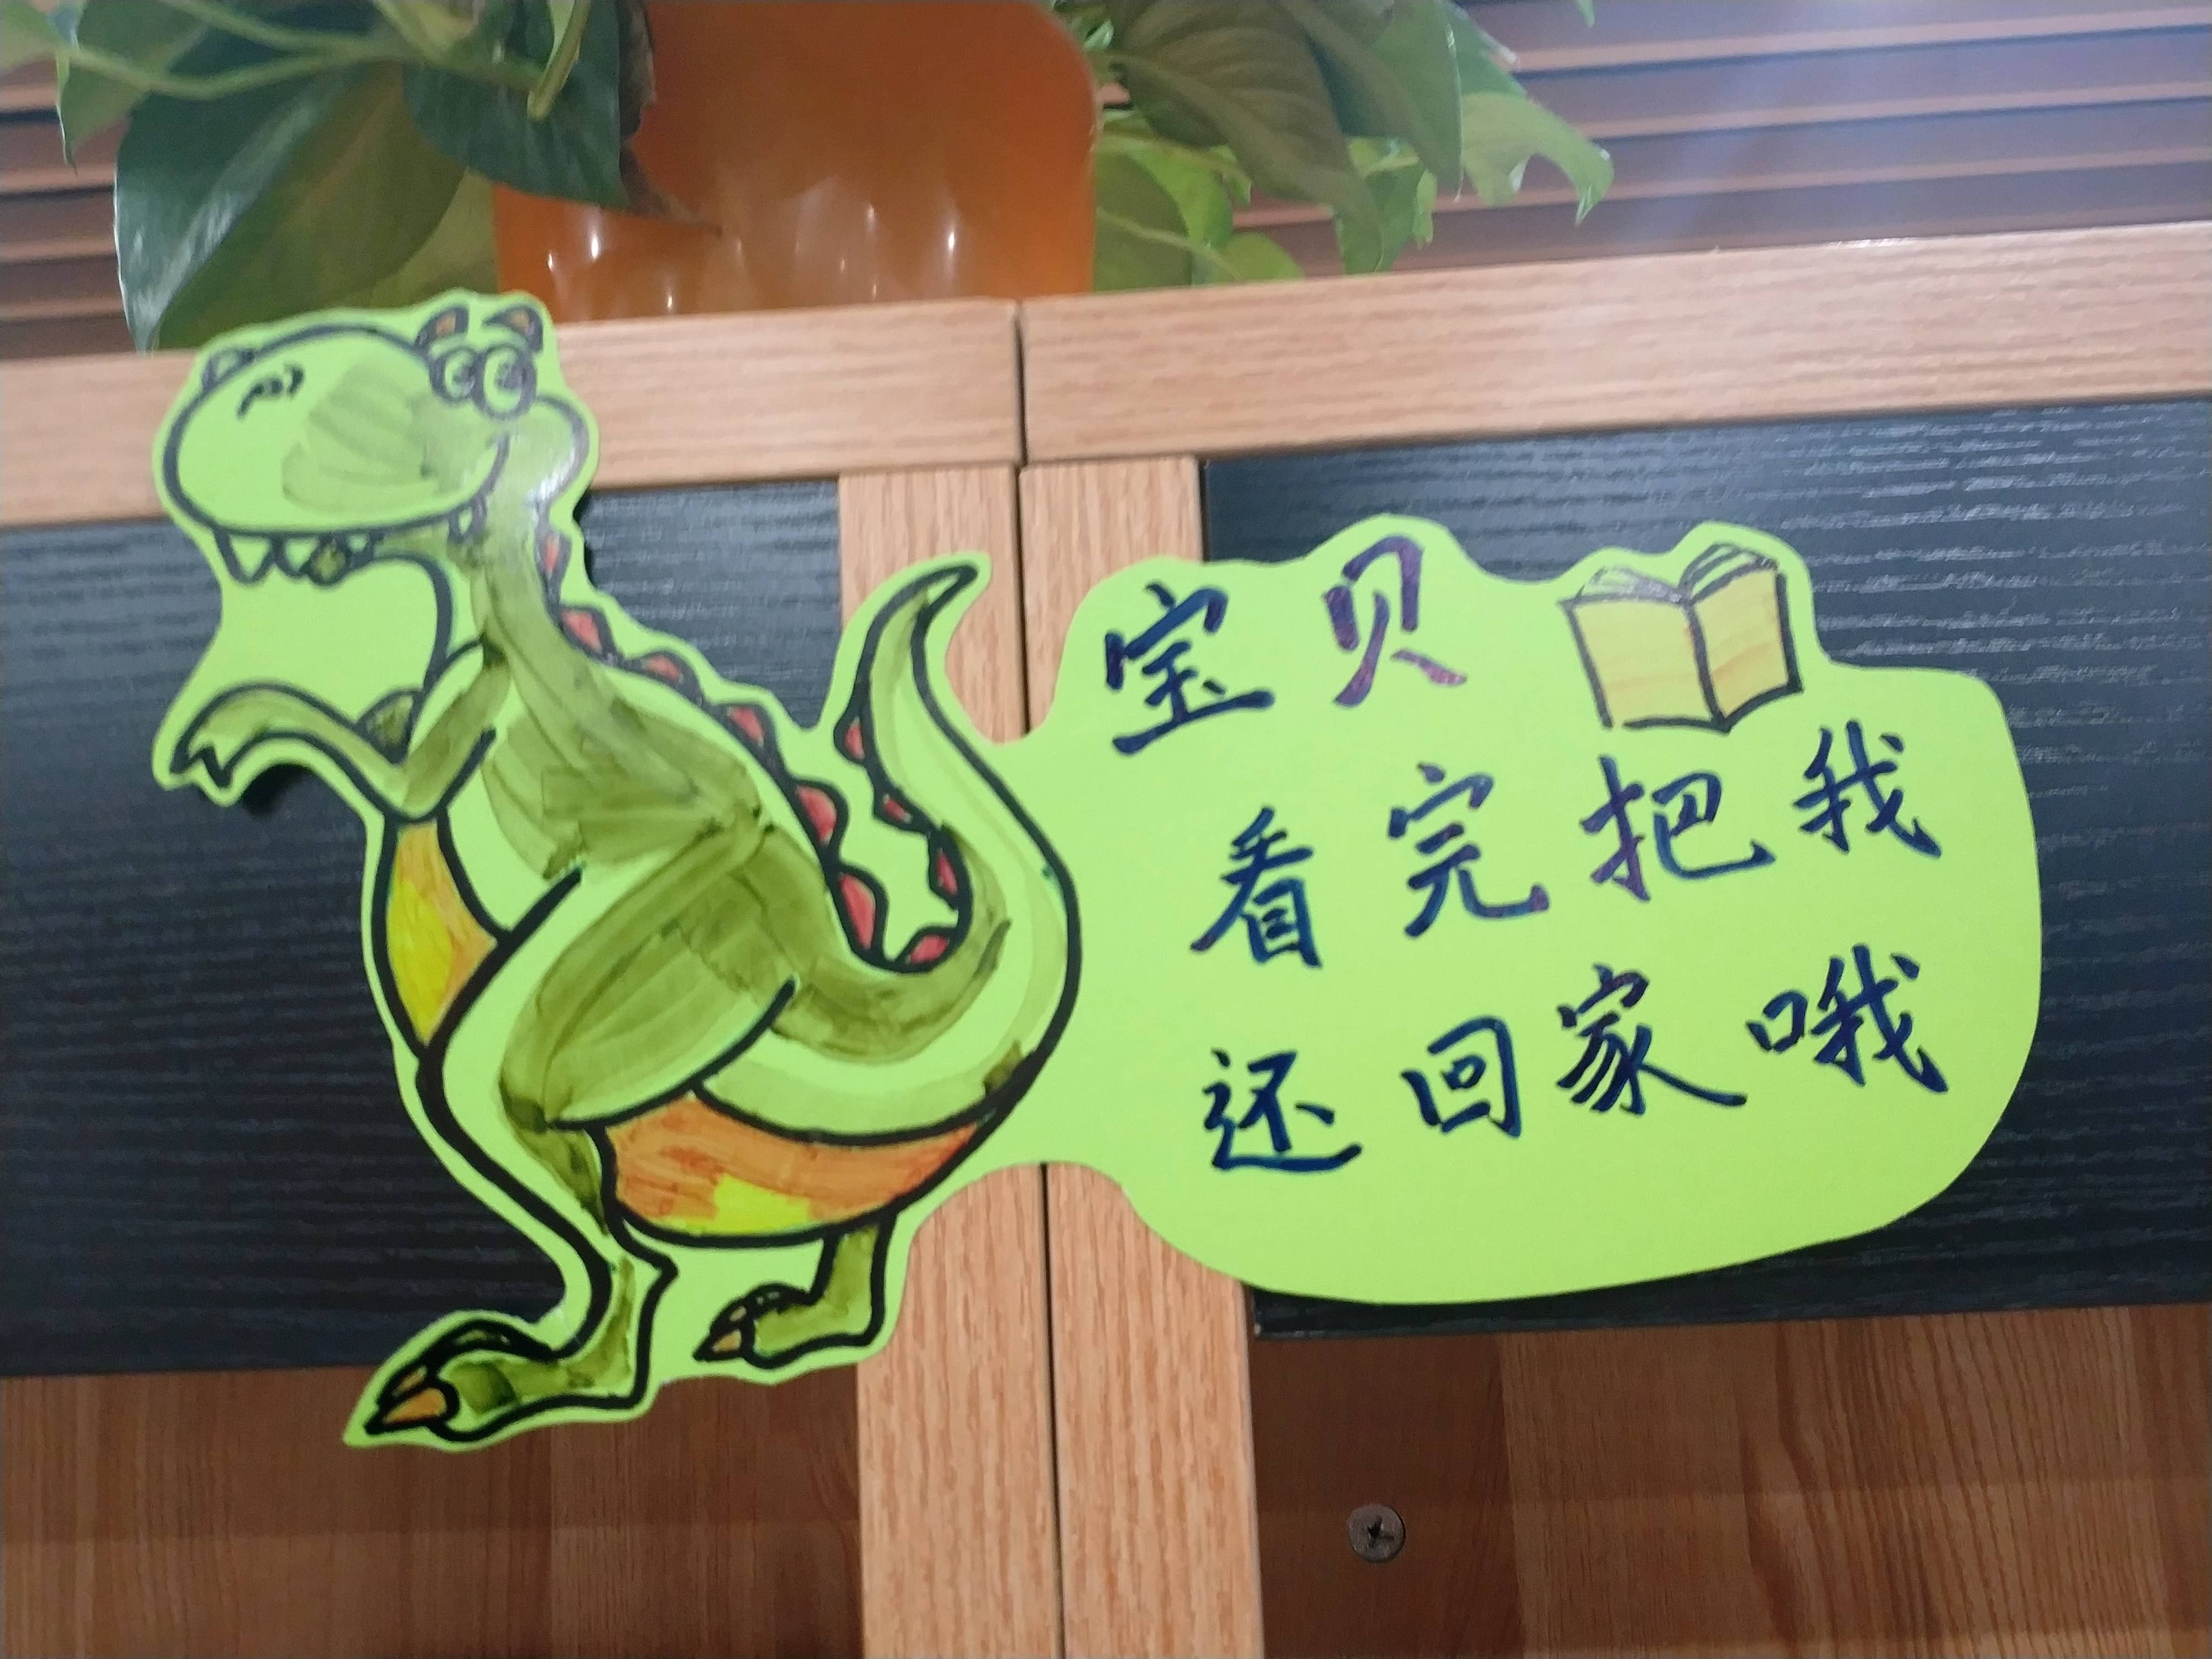 宝贝
看完把我
还回家哦